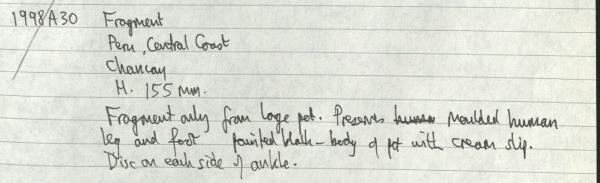 1998A30 Fragment
Peru, Central Coast
Chancay
H. 155 mm.
Fragment only from large pot. Preserves human moulded human
leg and foot painted black - body of pot with cream slip.
Disc on each side of ankle.